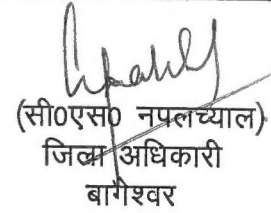 (सी0एस0 नपलच्याल)
जिला अधिकारी
बागेश्वर